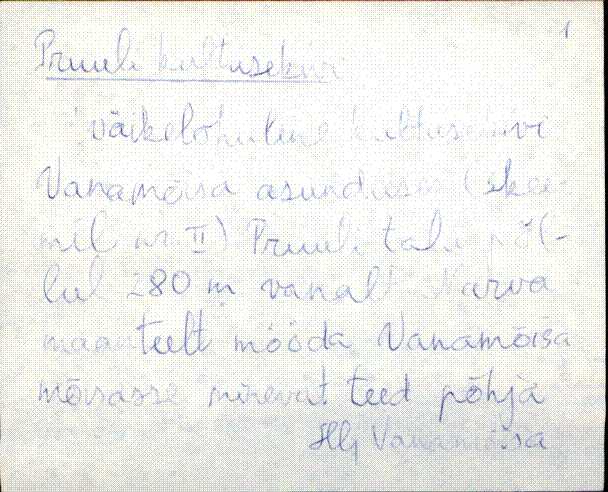 1
Pruuli kultusekivi
väikelohuline kultusekivi
Vanamõisa asunduses (skee-
mil nr. II) Pruuli talu põl-
lul 280 m vanalt Narva
maanteelt mööda Vanamõisa
mõisasse minevat teed põhja
Hlj Vanamõisa